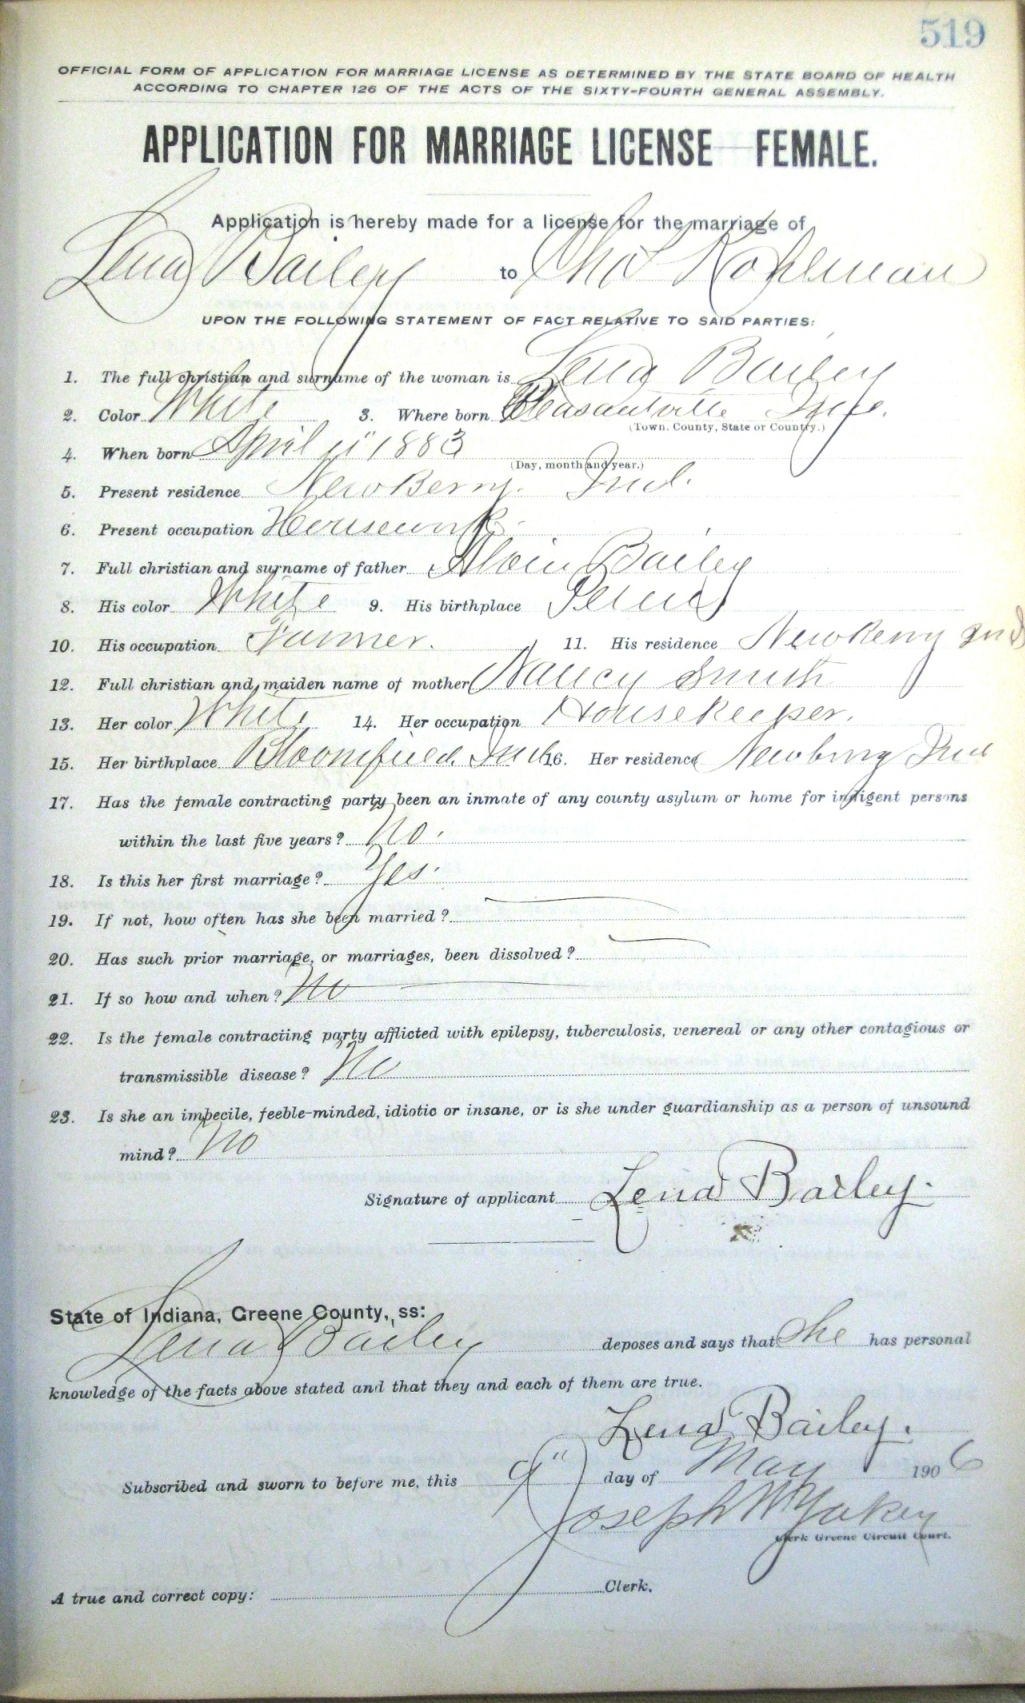 519
OFFICIAL FORM OF APPLICATION FOR MARRIAGE LICENSE AS DETERMINED BY THE STATE BOARD OF HEALTH
ACCORDING TO CHAPTER 126 OF THE ACTS OF THE SIXTY-FOURTH GENERAL ASSEMBLY.
APPLICATION FOR MARRIAGE LICENSE FEMALE.
Application is hereby made for a license for the marriage of
Lena Bailey to Chas Kohlman
UPON THE FOLLOWING STATEMENT OF FACT RELATIVE TO SAID PARTIES:
1. The full christian and surname of the woman is Lena Bailey
2. Color White 3. Where born Pleasantville Ind.
(Town, County, State or Country.)
4. When born April 11" 1883
(Day, month and year.)
5. Present residence NewBerry. Ind.
6. Present occupation Housework.
7. Full christian and surname of father Alvin Bailey
8. His color White 9. His birthplace
10. His occupation Farmer. 11. His residence NewBerry Ind
12. Full christian and maiden name of mother Nancy Smith
13. Her color White 14. Her occupation Housekeeper.
15. Her birthplace Bloomfield Ind 16. Her residence Newberry Ind
17. Has the female contracting party been an inmate of any county asylum or home for indigent persons
within the last five years? No.
18. Is this her first marriage? Yes.
19. If not, how often has she been married?
20. Has such prior marriage, or marriages, been dissolved?
21. If so how and when? No
22. Is the female contracting party afflicted with epilepsy, tuberculosis, venereal or any other contagious or
transmissible disease? No
23. Is she an imbecile, feeble-minded, idiotic or insane, or is she under guardianship as a person of unsound
mind? No
Signature of applicant Lena Bailey.
State of Indiana, Greene County, ss:
Lena Bailey deposes and says that She has personal
knowledge of the facts above stated and that they and each of them are true.
Lena Bailey.
Subscribed and sworn to before me, this 9" day of May 1906
Joseph W Yakey
Clerk Greene Circuit Court.
A true and correct copy: Clerk.